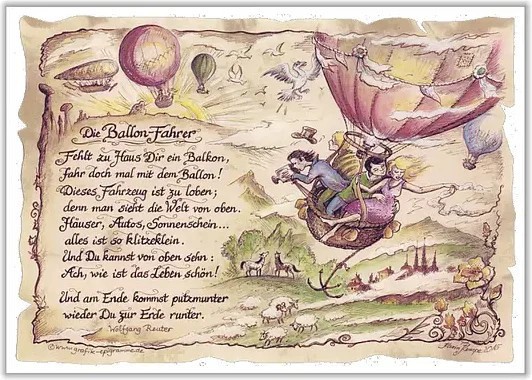 Die Ballon-Fahrer
Fehlt zu Haus Dir ein Balkon,
fahr doch mal mit dem Ballon!
Dieses Fahrzeug ist zu loben;
denn man sieht die Welt von oben.
Häuser, Autos, Sonnenschein...
alles ist so klitzeklein.
Und Du kannst von oben sehn:
Ach, wie ist das Leben schön!
Und am Ende kommst putzmunter
wieder Du zur Erde runter.
Wolfgang Reuter
©www.grafik-epigramme.de